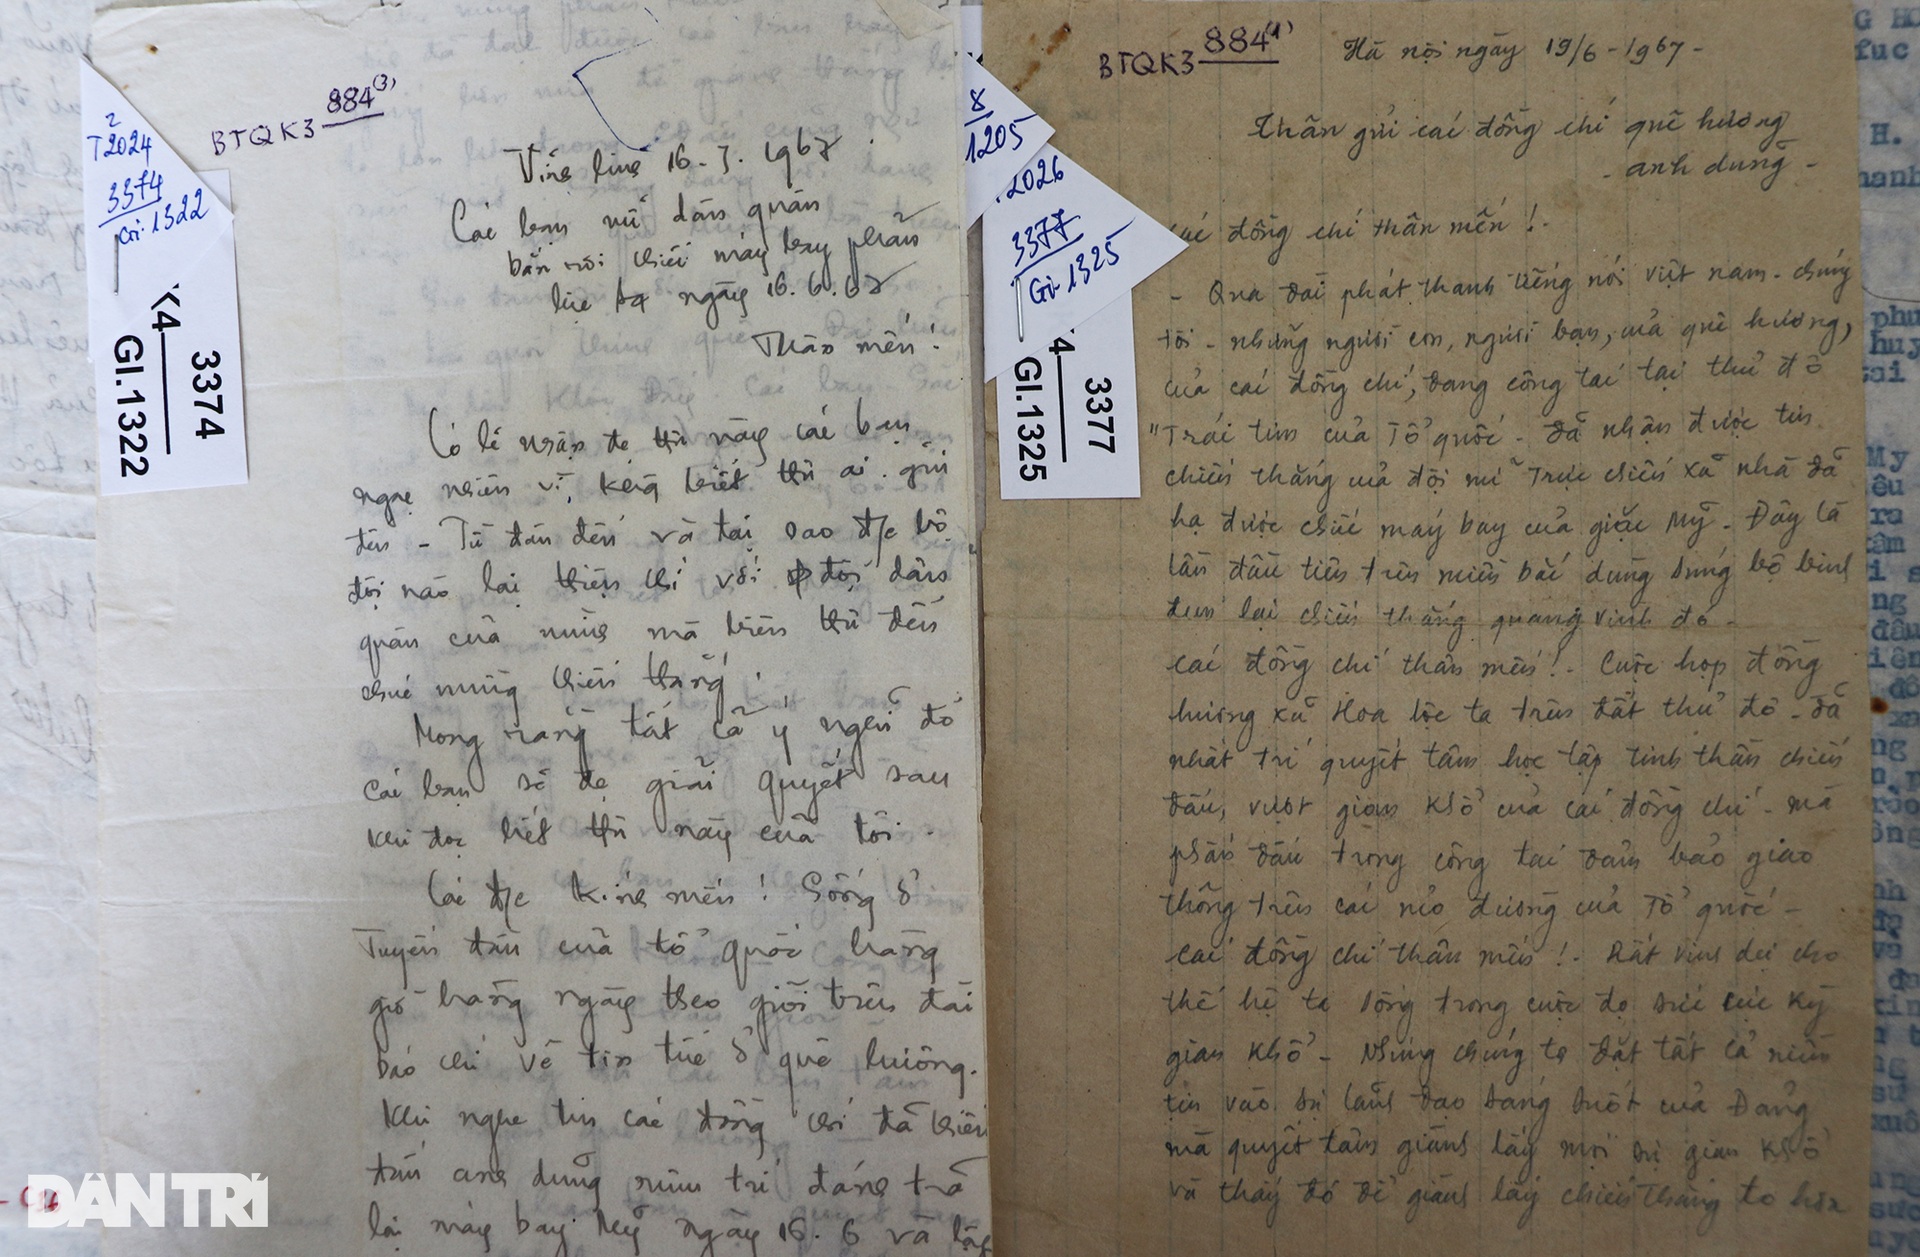 BTQK3 884(3)
T2024
3374
Gi: 1322
K4 3374
GI.1322
Vĩnh linh 16-7.1967
Các bạn nữ dân quân
bắn rơi chiếc máy bay phản
lực F4 ngày 16.6.67
Thân mến!
Có lẽ nhận đc thư này các bạn
ngạc nhiên vì không biết thư ai gửi
đến - Từ đâu đến và tại sao đ/c bộ
đội nào lại với đội dân
quân của mình mà biên thư đến
chúc mừng chiến thắng.
Mong rằng tất cả ý nghĩ đó
các bạn sẽ đc giải quyết sau
khi đọc hết thư này của tôi.
Các đ/c kính mến! Sống ở
Tuyến đầu của tổ quốc hàng
giờ hàng ngày theo giõi trên đài
báo chí về tin tức ở quê hương.
Khi nghe tin các đồng chí đã chiến
đấu anh dũng mưu trí đánh trả
lại máy bay Mỹ ngày 16.6 và lập
8
1205
2026
3377
Gi: 1325
4 3377
GI.1325
BTQK3 884(1)
Hà nội ngày 19/6-1967-
Thân gửi các đồng chí quê hương
- anh dũng -
Các đồng chí thân mến!-
- Qua đài phát thanh tiếng nói việt nam - chúng
tôi - những người con, người bạn, của quê hương,
của các đồng chí, đang công tác tại thủ đô
"Trái tim của Tổ quốc - đã nhận được tin
chiến thắng của đội nữ Trực chiến xã nhà đã
hạ được chiếc máy bay của giặc Mỹ - Đây là
lần đầu tiên trên miền bắc dùng súng bộ binh
đem lại chiến thắng quang vinh đó -
Các đồng chí thân mến!- Cuộc họp đồng
hương xã Hoa lộc ta trên đất thủ đô - đã
nhất trí quyết tâm học tập tinh thần chiến
đấu, vượt gian khổ của các đồng chí - mà
phấn đấu trong công tác đảm bảo giao
thông trên các nẻo đường của Tổ quốc -
Các đồng chí thân mến!- Rất vinh dự cho
thế hệ ta sống trong cuộc đọ sức cực kỳ
gian khổ - Nhưng chúng ta đặt tất cả niềm
tin vào sự lãnh đạo sáng suốt của Đảng
mà quyết tâm giành lấy mọi sự gian khổ
và thay đó để giành lấy chiến thắng to lớn
DÂN TRÍ